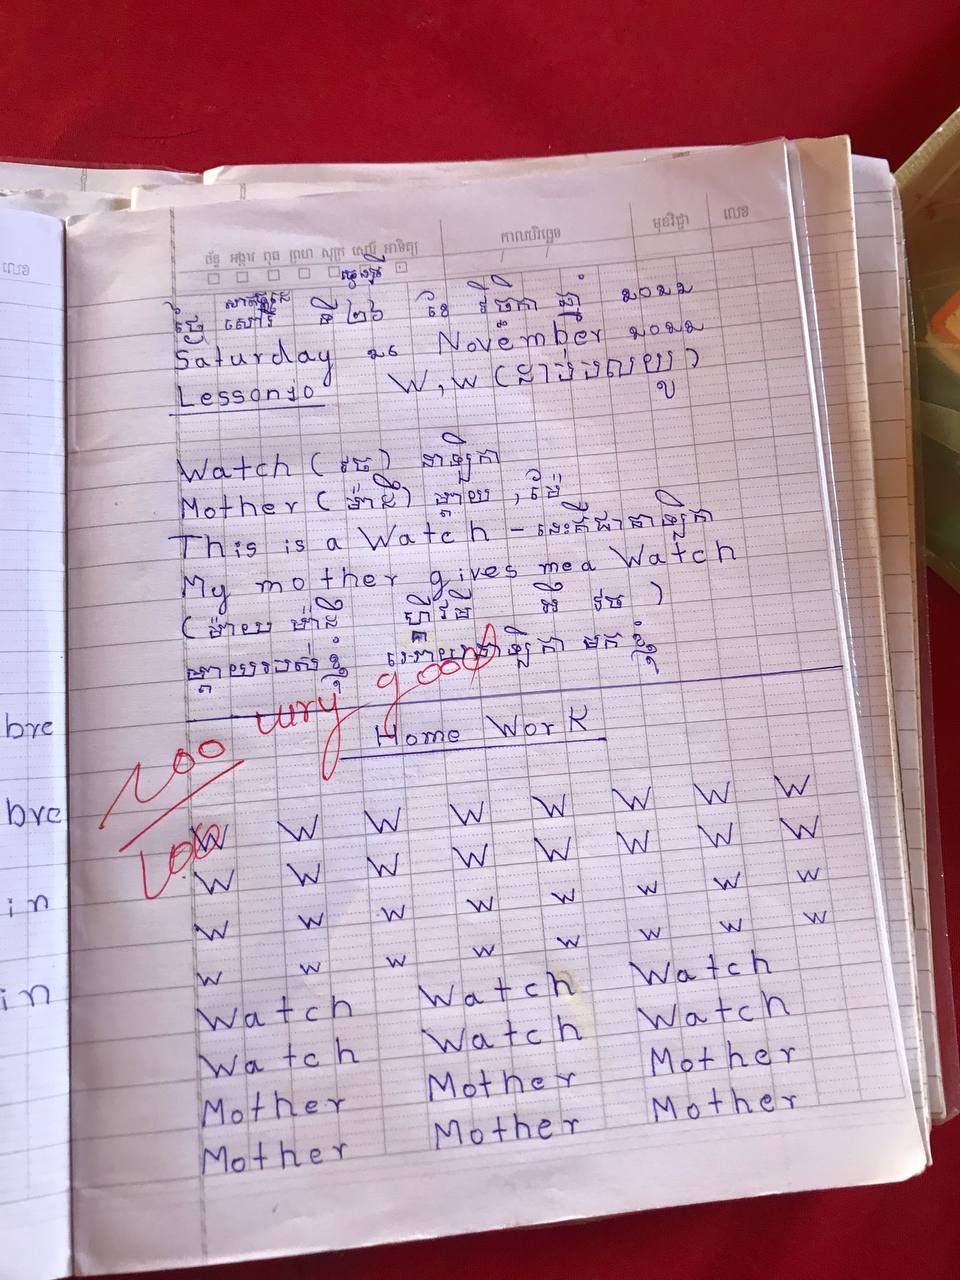 លេខ
ច័ន្ទ អង្គារ ពុធ ព្រហ សុក្រ សៅរ៍ អាទិត្យ
កាលបរិច្ឆេទ
មុខវិជ្ជា
លេខ
ថ្ងៃ សៅរ៍ ទី២៦ ខែ វិច្ឆិកា ឆ្នាំ ២០២២
Saturday 26 November 2022
Lesson 10 W, w
Watch (វច) នាឡិកា
Mother (ម៉ាធឺ) ម្តាយ, ម៉ែ
This is a Watch - នេះគឺជានាឡិកា
My mother gives me a Watch
(ម៉ាយ ម៉ាធឺ ហ្គីវមី អឺ វច)
ម្តាយរបស់ខ្ញុំ នាឡិកា មកខ្ញុំ
100 very good
100
Home Work
W W W W W W W W
W W W W W W W W
w w w w w w w w
w w w w w w w w
Watch Watch Watch
Watch Watch Watch
Mother Mother Mother
Mother Mother Mother
bre
bre
in
in